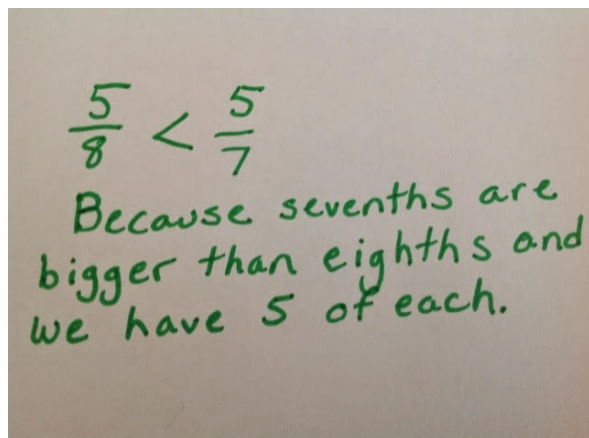 5/8 < 5/7
Because sevenths are
bigger than eighths and
we have 5 of each.